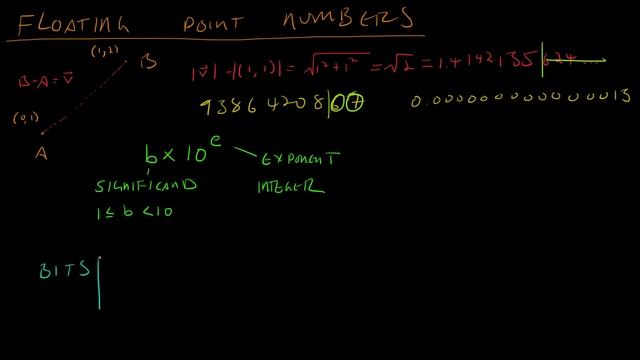 FLOATING POINT NUMBERS
(1,2)
B
B-A=v⃗
|v⃗|=|(1,1)|=√1²+1²=√2=1.4142135|624...
(0,1)
A
938642081|607
0.00000000000000013
b×10^e
EXPONENT
SIGNIFICAND
INTEGER
1≤b<10
BITS